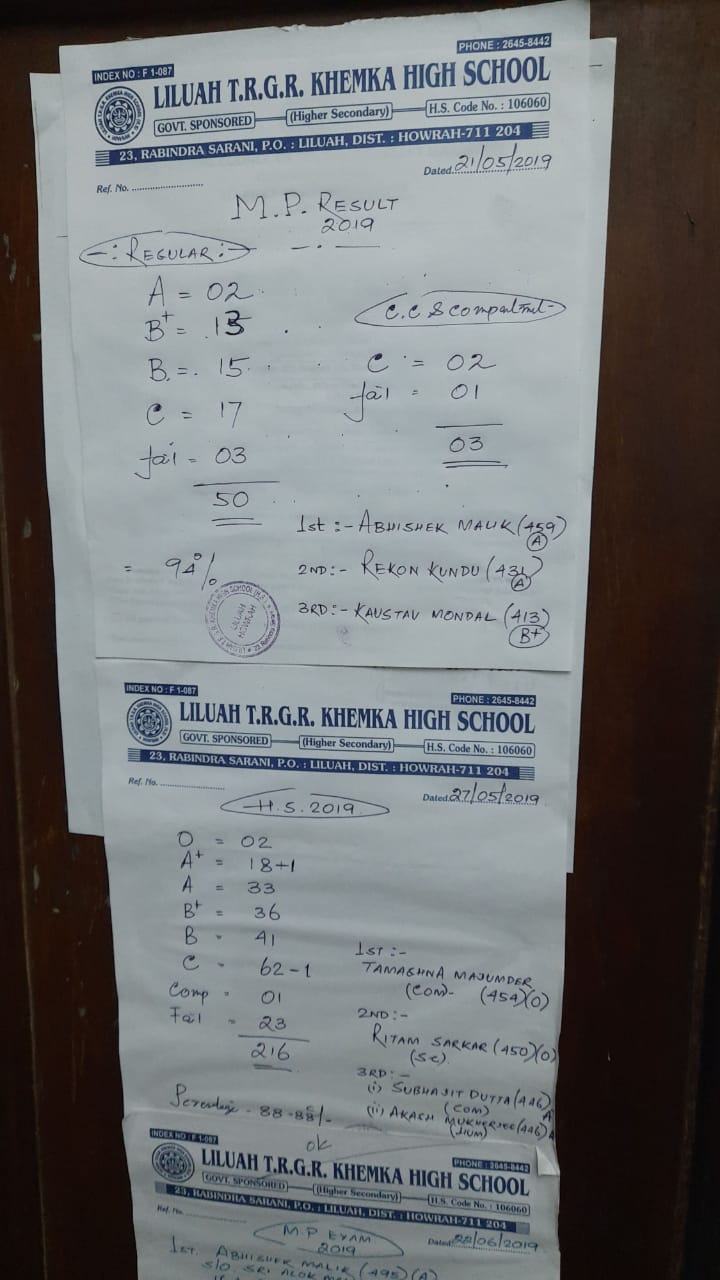 PHONE : 2645-8442
INDEX NO : F 1-087
LILUAH T.R.G.R. KHEMKA HIGH SCHOOL
GOVT. SPONSORED (Higher Secondary) H.S. Code No. : 106060
23, RABINDRA SARANI, P.O. : LILUAH, DIST. : HOWRAH-711 204
Ref. No. Dated 21/05/2019
M.P. RESULT
2019
-: REGULAR :-
A = 02
B+ = 13
B = 15
C = 17
fail = 03
50
= 94%
C.C &
C = 02
fail = 01
03
1st :- ABHISHEK MALIK (459)
A
2ND :- REKON KUNDU (431)
A
3RD :- KAUSTAV MONDAL (413)
B+
LILUAH
HOWRAH
INDEX NO : F 1-087
PHONE : 2645-8442
LILUAH T.R.G.R. KHEMKA HIGH SCHOOL
GOVT. SPONSORED (Higher Secondary) H.S. Code No. : 106060
23, RABINDRA SARANI, P.O. : LILUAH, DIST. : HOWRAH-711 204
Ref. No. Dated 27/05/2019
H.S. 2019
O = 02
A+ = 18+1
A = 33
B+ = 36
B = 41
C = 62-1
Comp = 01
Fail = 23
216
Percentage - 88.88%
ok
1ST :-
TAMAGHNA MAJUMDER
(COM)- (454)(O)
2ND :-
RITAM SARKAR (450)(O)
(Sc)
3RD :-
(i) SUBHAJIT DUTTA (446)
(COM) A
(ii) AKASH MUKHERJEE (446) A
INDEX NO : F 1-087
PHONE : 2645-8442
LILUAH T.R.G.R. KHEMKA HIGH SCHOOL
GOVT. SPONSORED (Higher Secondary) H.S. Code No. : 106060
23, RABINDRA SARANI, P.O. : LILUAH, DIST. : HOWRAH-711 204
Ref. No. Dated 22/06/2019
M.P EXAM
2019
1ST. ABHISHEK MALIK (495) (A)
S/O. SRI ALOK